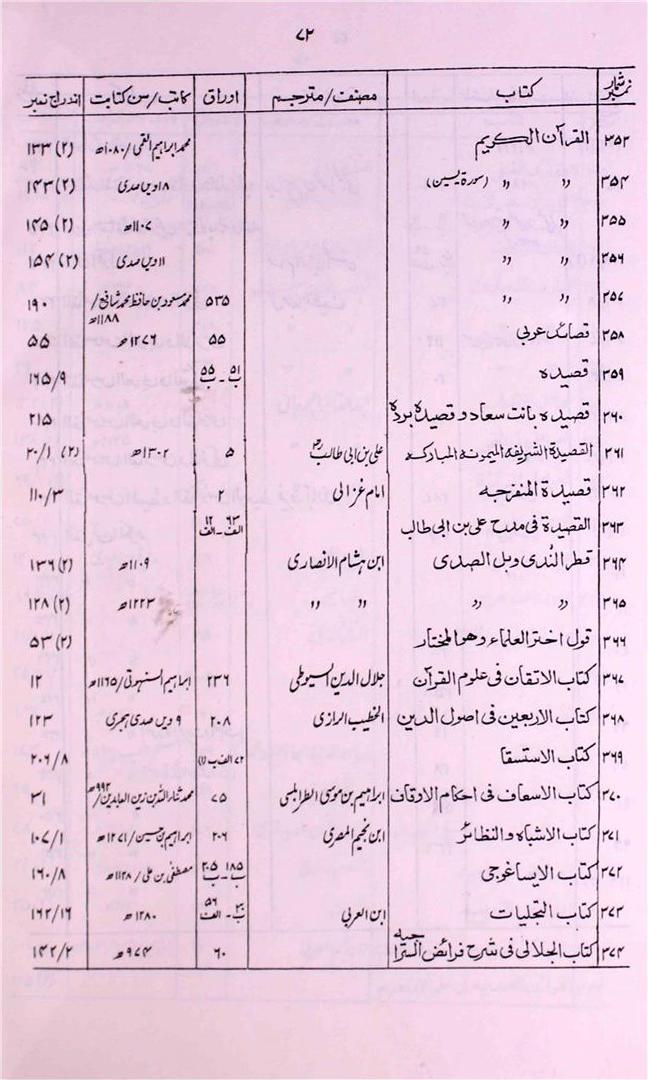 ۷۲
نمبر شمار کتاب مصنف/مترجم اوراق کاتب/سن کتابت اندراج نمبر
۳۵۳ القرآن الکریم محمد ابراہیم القمی/۱۰۸۰ھ (۲) ۱۳۳
۳۵۴ " " (سورۃ یٰسین) ۱۸ویں صدی (۲) ۱۴۳
۳۵۵ " " ۱۱۰۷ھ (۲) ۱۴۵
۳۵۶ " " ۱۱ویں صدی (۲) ۱۵۴
۳۵۷ " " ۵۳۵ محمد مسعود بن حافظ محمد شافع/۱۱۸۸ھ ۱۹۰
۳۵۸ قصائد عربی ۵۵ ۱۲۷۶ھ ۵۵
۳۵۹ قصیدہ ۵۱ب-۵۵ب ۱۶۵/۹
۳۶۰ قصیدہ بانت سعاد و قصیدۃ بردۃ ۲۱۵
۳۶۱ القصیدۃ الشریفہ المیمونہ المبارکہ علی بن ابی طالبؓ ۵ ۱۳۰۲ھ (۲) ۲۰/۱
۳۶۲ قصیدۃ المنفرجہ امام غزالی ۲ ۱۱۰/۳
۳۶۳ القصیدۃ فی مدح علی بن ابی طالب ۶۳الف-۱۲الف
۳۶۴ قطر الندی وبل الصدی ابن ہشام الانصاری ۱۱۰۹ھ (۲) ۱۳۶
۳۶۵ " " " " ۱۲۲۳ھ (۲) ۱۲۸
۳۶۶ قول اختر العلماء وھو المختار (۲) ۵۳
۳۶۷ کتاب الاتقان فی علوم القرآن جلال الدین السیوطی ۲۳۶ ابراہیم السنہوتی/۱۱۶۵ھ ۱۲
۳۶۸ کتاب الاربعین فی اصول الدین الخطیب الرازی ۲۰۸ ۹ ویں صدی ہجری ۱۲۳
۳۶۹ کتاب الاستسقا ۲۰۶/۸
۳۷۰ کتاب الاسعاف فی احکام الاوقاف ابراہیم بن موسی الطرابلسی ۷۵ محمد ثناء الدین بن زین العابدین/۹۹۲ھ ۳۱
۳۷۱ کتاب الاشباہ والنظائر ابن نجیم المصری ۲۰۶ ابراہیم بن حسین/۱۲۷۱ھ ۱۰۷/۱
۳۷۲ کتاب الایساغوجی ۱۸۵ب-۲۰۵ب مصطفی بن علی/۱۱۲۸ھ ۱۶۰/۸
۳۷۳ کتاب التجلیات ابن العربی ۲۰ب-۵۶الف ۱۲۸۰ھ ۱۶۲/۱۶
۳۷۴ کتاب الجلالی فی شرح فرائض السراجیہ ۶۰ ۹۷۴ھ ۱۴۲/۲